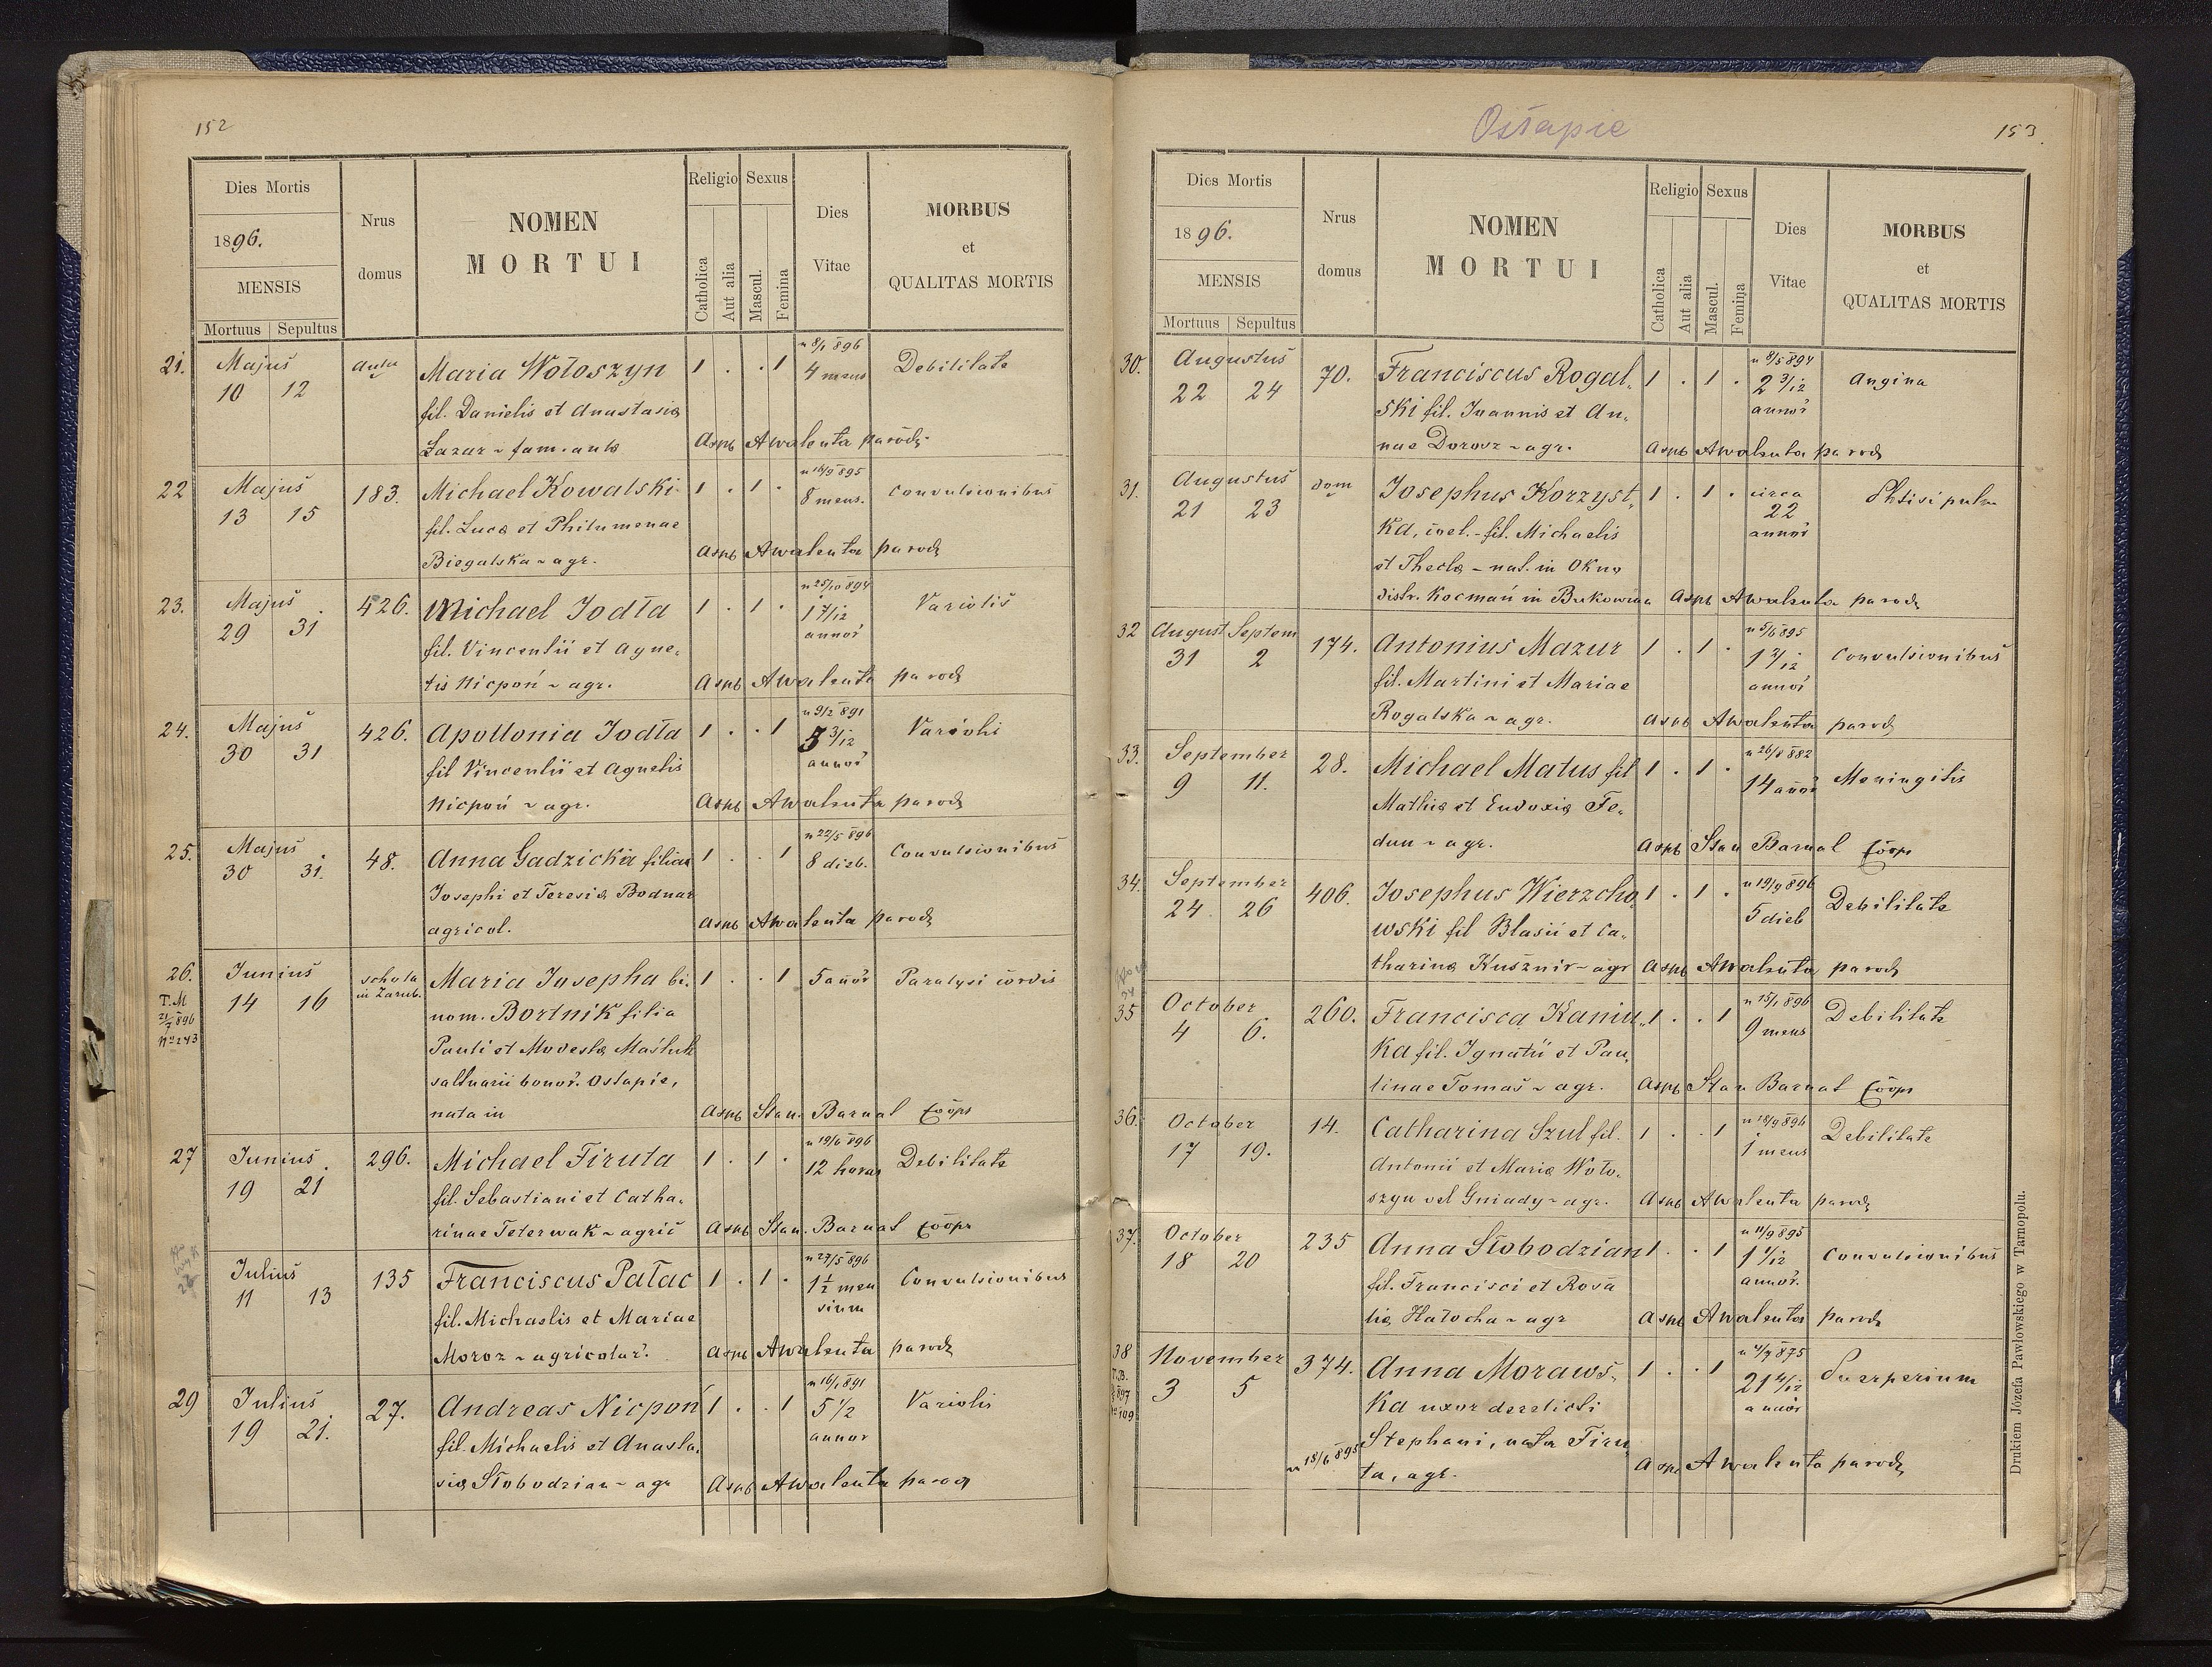 152
Dies Mortis
1896.
MENSIS
Mortuus Sepultus
Nrus domus
NOMEN
MORTUI
Religio Sexus
Catholica Aut alia Mascul. Femina
Dies Vitae
MORBUS
et
QUALITAS MORTIS
21. Majus 10 12 aula Maria Wołoszyn 1 . . 1 n 8/1 896 4 mens Debilitate
fil. Danielis et Anastasia
Lazar ~ fam. aula Asph A Walenta paroch
22 Majus 13 15 183. Michael Kowalski 1 . 1 . n 16/9 895 8 mens. Convulsionibus
fil. Luca et Philumenae
Biegalska ~ agr. Asph A Walenta paroch
23. Majus 29 31 426. Michael Jodła 1 . 1 . n 25/10 894 1 7/12 annor Variolis
fil. Vincentii et Agne-
tis Nicpoń ~ agr. Asph A Walenta paroch
24. Majus 30 31 426. Apollonia Jodła 1 . . 1 n 9/2 891 5 3/12 annor Varioli
fil Vincentii et Agnetis
Nicpoń ~ agr. Asph A Walenta paroch
25. Majus 30 31. 48. Anna Gadzicka filia 1 . . 1 n 22/5 896 8 dieb. Convulsionibus
Josephi et Teresia Bodnar
agricol. Asph A Walenta paroch
26. Junius 14 16 schola in Zarub. Maria Josepha bi- 1 . . 1 5 annor Paralysi cordis
T.M
21/7 896
No 243
nom. Bortnik filia
Pauli et Modesta Maśluk
saltuarii bonor. Ostapie,
nata in Asph Stan. Barnal Coop
27 Junius 19 21 296. Michael Firuta 1 . 1 . n 19/6 896 12 horar Debilitate
fil. Sebastiani et Catha-
rinae Teterwak ~ agric Asph Stan. Barnal Coop
Julius 11 13 135 Franciscus Pałac 1 . 1 . n 27/5 896 1 1/2 mensium Convulsionibus
fil. Michaelis et Mariae
Moroz ~ agricolar. Asph A Walenta paroch
29 Julius 19 21. 27. Andreas Nicpoń 1 . . 1 n 16/1 891 5 1/2 annor Variolis
fil. Michaelis et Anasta-
sia Słobodzian ~ agr Asph A Walenta paroch
Ostapie
153
Dies Mortis
1896.
MENSIS
Mortuus Sepultus
Nrus domus
NOMEN
MORTUI
Religio Sexus
Catholica Aut alia Mascul. Femina
Dies Vitae
MORBUS
et
QUALITAS MORTIS
30. Augustus 22 24 70. Franciscus Rogal- 1 . 1 . n 8/5 894 2 3/12 annor Angina
ski fil. Joannis et An-
nae Dorosz ~ agr. Asph A Walenta paroch
31. Augustus 21 23 dom Josephus Korzyst- 1 . 1 . circa 22 annor Phtisi pulm
ka, coel. - fil. Michaelis
et Thecla - nat. in Okno
distr. Kocmań in Bukowina Asph A Walenta paroch
32 August Septem 31 2 174. Antonius Mazur 1 . 1 . n 5/6 895 1 2/12 annor Convulsionibus
fil. Martini et Mariae
Rogalska ~ agr. Asph A Walenta paroch
33. September 9 11. 28. Michael Matus fil 1 . 1 . n 26/8 882 14 annor Meningitis
Mathia et Eudoxia Fe-
dun ~ agr. Asph Stan Barnal Coop
34. September 24 26 406. Josephus Wierzcho- 1 . 1 . n 19/9 896 5 dieb Debilitate
wski fil Blasii et Ca-
tharina Kusznir - agr Asph A Walenta paroch
35 October 4 6. 260. Francisca Kaniu- 1 . . 1 n 15/1 896 9 mens Debilitate
ka fil. Ignatii et Pau-
linae Tomaś ~ agr. Asph Stan Barnal Coop
36. October 17 19. 14. Catharina Szul fil. 1 . . 1 n 18/9 896 1 mens Debilitate
Antonii et Maria Woło-
szyn vel Gniady ~ agr. Asph A Walenta paroch
37. October 18 20 235 Anna Słobodzian 1 . . 1 n 11/9 895 1 1/12 annor. Convulsionibus
fil. Francisci et Rosa
lia Hałocha ~ agr Asph A Walenta paroch
38 November 3 5 374. Anna Moraws- 1 . . 1 n 4/7 875 21 4/12 annor Puerperium
ka uxor derelicti
Stephani, nata Firu-
ta, agr. Asph A Walenta paroch
18/6 895
Drukiem Józefa Pawłowskiego w Tarnopolu.